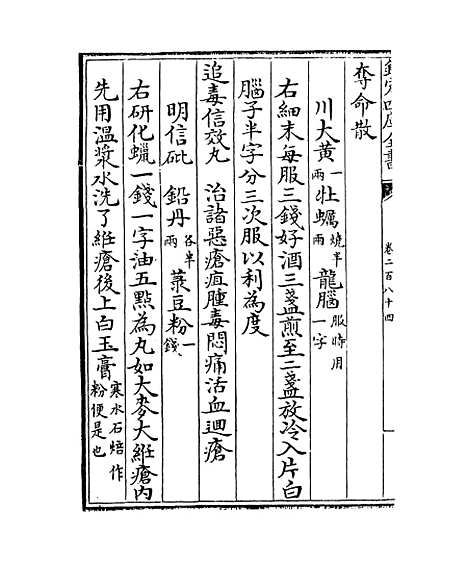 欽定四庫全書
卷二百八十四
奪命散
川大黃一兩 牡蠣燒半兩 龍腦服時用一字
右細末每服三錢好酒三盞煎至二盞放冷入片白
腦子半字分三次服以利為度
追毒信效丸 治諸惡瘡疽腫毒悶痛活血迴瘡
明信砒 鉛丹各半兩 菉豆粉一錢
右研化蠟一錢一字油五點為丸如大麥大絍瘡内
先用温漿水洗了絍瘡後上白玉膏寒水石焙作粉便是也